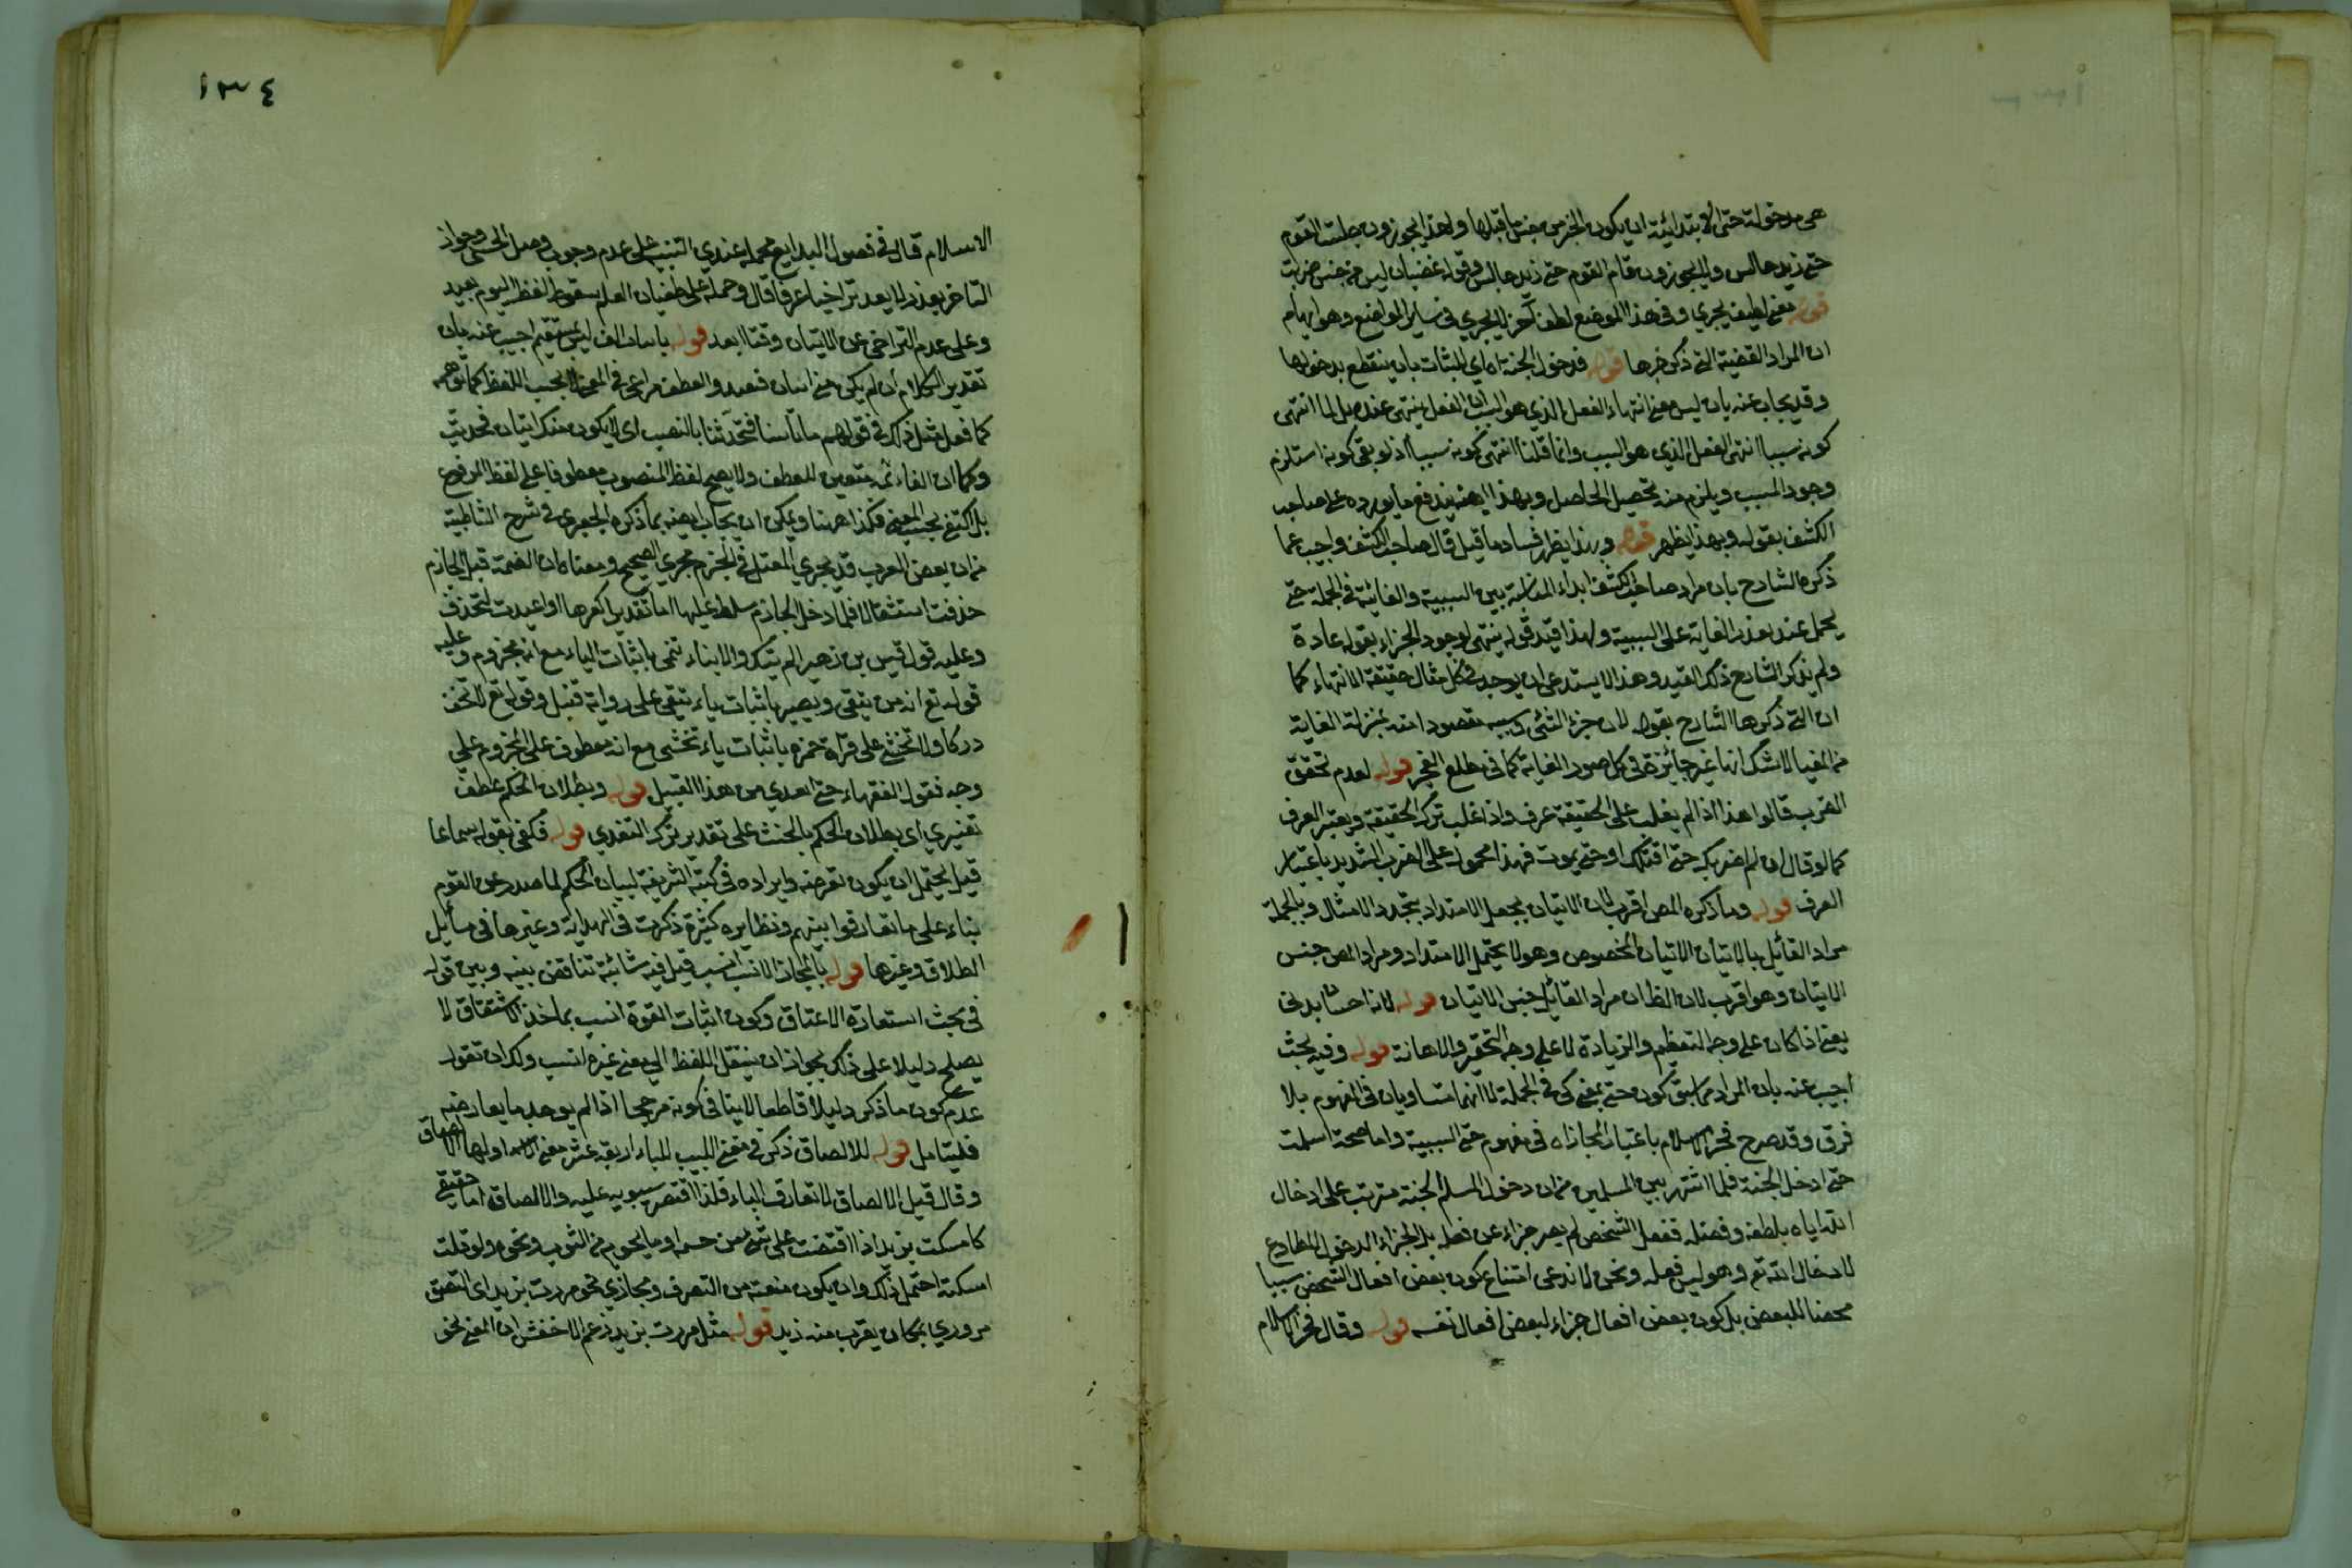 هي مدخولة حتى الابتدائية ان يكون الخبر من جنس ما قبلها ولهذا يجوزون جلست القوم
حتى زيد جالس ولا يجوزون قام القوم حتى زيد جالس وقوله غضبان ليس من جنس ضربت
قوله معنى لطيف يجري وفي هذا الموضع لطف آخر لا يجري في سائر المواضع وهو ايهام
ان المراد القضية التي ذكر خبرها قوله فدخول الجنة اه اي الثبات بان ينقطع بدخولها
وقد يجاب عنه بان ليس معنى انتهاء الفعل الذي هو السبب ان الفعل ينتهي عنده بل لما انتهى
كونه سببا انتهى الفعل الذي هو السبب وانما قلنا انتهى كونه سببا اذ لو بقي كونه استلزم
وجود المسبب ويلزم منه تحصيل الحاصل وبهذا ايضا يندفع ما يورده على صاحب
الكشف بقوله وبهذا يظهر قوله وبهذا يظهر فساد ما قيل قال صاحب الكشف واجيب عما
ذكره الشارح بان مراد صاحب الكشف ابداء المناسبة بين السببية والغائية في الجملة حتى
يحمل عند تعذر الغاية على السببية ولهذا قيد قوله ينتهي بوجود الجزاء بقوله عادة
ولم يذكر الشارح ذلك القيد وهذا لا يستدعي ان يوجد في كل مثال حقيقة الانتهاء كما
ان التي ذكرها الشارح بقوله لان جزء الشئ ومسببه مقصود منه بمنزلة الغاية
من المغيا لا شك انها غير جائزة في كل صور الغاية كما في مطلع الفجر قوله لعدم تحقق
الضرب قالوا هذا اذا لم يغلب على الحقيقة عرف واذا غلب ترك الحقيقة ويعتبر العرف
كما لو قال ان لم اضربك حتى اقتلك او حتى يموت فهذا محمول على الضرب الشديد باعتبار
العرف قوله وما ذكره المص اقرب لان الاتيان يجعل الامتداد بتجدد الامثال وبالجملة
مراد القائل بالاتيان الاتيان المخصوص وهو لا يحتمل الامتداد ومراد المص جنس
الاتيان وهو اقرب لان الظ ان مراد القائل جنس الاتيان قوله لانه احسان بدني
يعني اذا كان على وجه التعظيم والزيادة لا على وجه التحقير والاهانة قوله وفيه بحث
اجيب عنه بان المراد مما سبق كون حتى بمعنى كي في الجملة لا انهما متساويان في المفهوم بلا
فرق وقد صرح فخر الاسلام باعتبار المجازاه في مفهوم حتى السببية واما صحة اسلمت
حتى ادخل الجنة فلما اشتهر بين المسلمين من ان دخول المسلم الجنة مترتب على ادخال
الله اياه بلطفه وفضله ففعل الشخص لم يصر جزاء عن فعله بل الجزاء الدخول المطاوع
لادخال الله تع وهو ليس فعله ونحن لا ندعي امتناع كون بعض افعال الشخص سببا
محضا للبعض بل كون بعض افعال جزاء لبعض افعال نفسه قوله وقال فخر الاسلام
١٣٤
الاسلام قال في فصول البدايع محمله عندي التنبيه على عدم وجوب وصل الحسي وجواز
التاخر بعذر لا يعد تراخيا عرفا قال وحمله على طغيان القلم بسقوط لفظ اليوم بعيد
وعلى عدم التراخي عن الاتيان وقتا ابعد قوله باثبات الف ليس بمستقيم اجيب عنه بان
تقدير الكلام ان لم يكن مني اتيان فتعد والعطف مراعى في المعنى لا بحسب اللفظ كما توهمه
كما فعل مثل ذلك في قولهم ما تأتينا فتحدثنا بالنصب اي لا يكون منك اتيان فحديث
وكما ان الفاء ثمه متعين للعطف ولا يصح لفظ المنصوب معطوفا على لفظ المرفوع
بل اكتفى بحسب المعنى فكذا ههنا ويمكن ان يجاب ايضا بما ذكره الجعبري في شرح الشاطبية
من ان بعض العرب قد يجري المعتل في الجزم مجرى الصحيح ومعناه ان الضمة قبل الجازم
حذفت استثقالا فلما دخل الجازم سلط عليها اما تقدير الغيرها او اعيدت لتحذف
وعليه قول قيس بن زهير الم يأتيك والانباء تنمي باثبات الياء مع انه مجزوم وعليه
قوله تع انه من يتقي ويصبر باثبات ياء يتقي على رواية قنبل وقوله تع لا تخف
دركا ولا تخشى على قراة حمزه باثبات ياء تخشى مع انه معطوف على المجزوم على
وجه فقول الفقهاء حتى اتغدي من هذا القبيل قوله وبطلان الحكم عطف
تفسيري اي بطلان الحكم بالحنث على تقدير ترك التغدي قوله فكفى بقوله سماعا
قيل يحتمل ان يكون تعرضه وايراده في كتبه الشريفة لبيان الحكم لما صدر عن القوم
بناء على ما تعارفوا بينهم ونظايره كثيرة ذكرت في الهداية وغيرها في مسائل
الطلاق وغيرها قوله بالمجاز الانسب انسب قيل فيه شائبة تناقض بينه وبين قوله
في بحث استعارة الاعتاق وكون اثبات القوة انسب بماخذ الاشتقاق لا
يصلح دليلا على ذلك لجواز ان ينتقل اللفظ الي معنى غيره انسب ولك ان تقول
عدم كون ما ذكر دليلا قاطعا لا ينافي كونه مرجحا اذا لم يوجد ما يعارضه
فليتامل قوله للالصاق ذكر في مغني اللبيب للباء اربعة عشر معنى اولها الالصاق
وقال قيل الالصاق لا تفارق الباء فلذا اقتصر سيبويه عليه والالصاق اما حقيقي
كامسكت بزيد اذا قبضت على شئ من جسمه او ما يحويه من الثوب ونحوه ولو قلت
امسكته احتمل ذلك وان يكون منعته من التصرف ومجازي نحو مررت بزيد اي التصق
مروري بمكان يقرب منه زيد قوله مثل مررت بزيد زعم الاخفش ان المعنى نحو